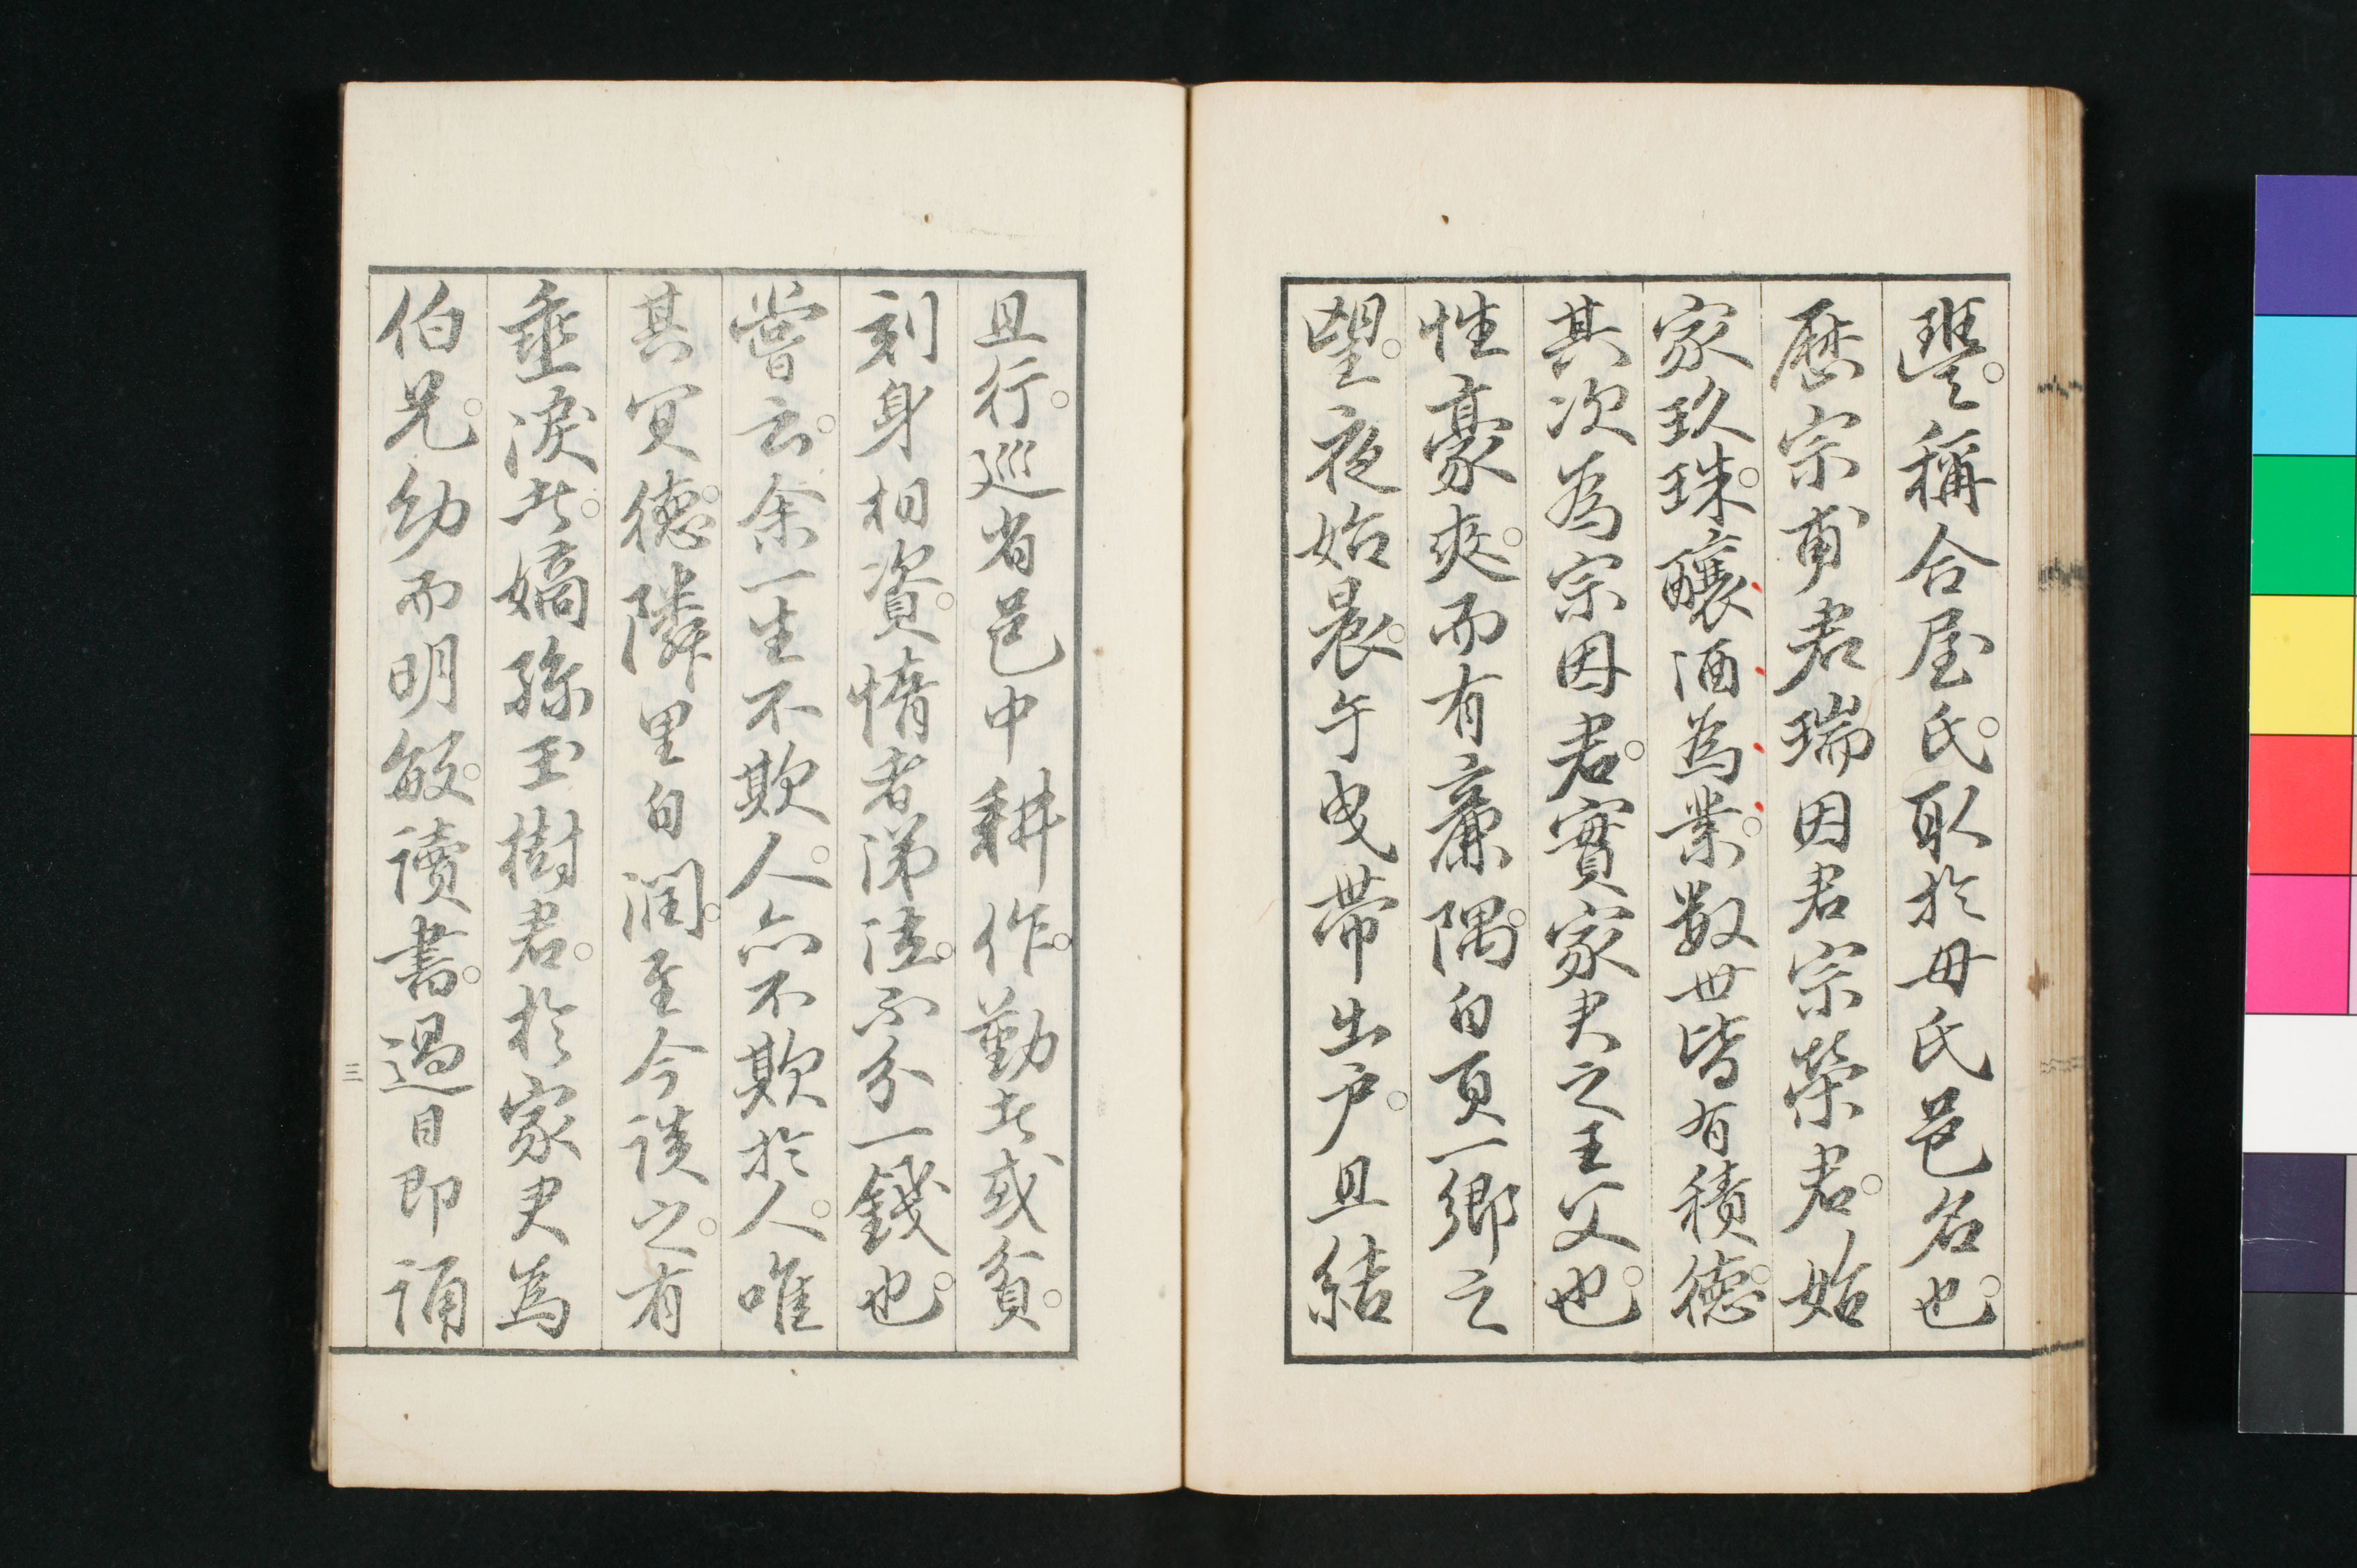 。稱合屋氏。取於毋氏邑名也。
歷宗甫君瑞因君宗榮君。始
家玖珠。釀酒為業。数世皆有積德。
其次為宗因君。實家尹之王父也。
性豪爽。而有廉隅。自負一鄉之
望。夜始晨。午曳帶出戶。且結
且行。巡省邑中耕作。勤者或貧。
刻身相資。惰者涕泣。不分一錢也。
嘗云。余一生不欺人。亦不欺於人。唯
其冥德。隣里自潤。至今談之。有
垂淚者。嫡孫玉樹君。於家尹為
伯兄。幼而明敏。讀書。過目即誦
三